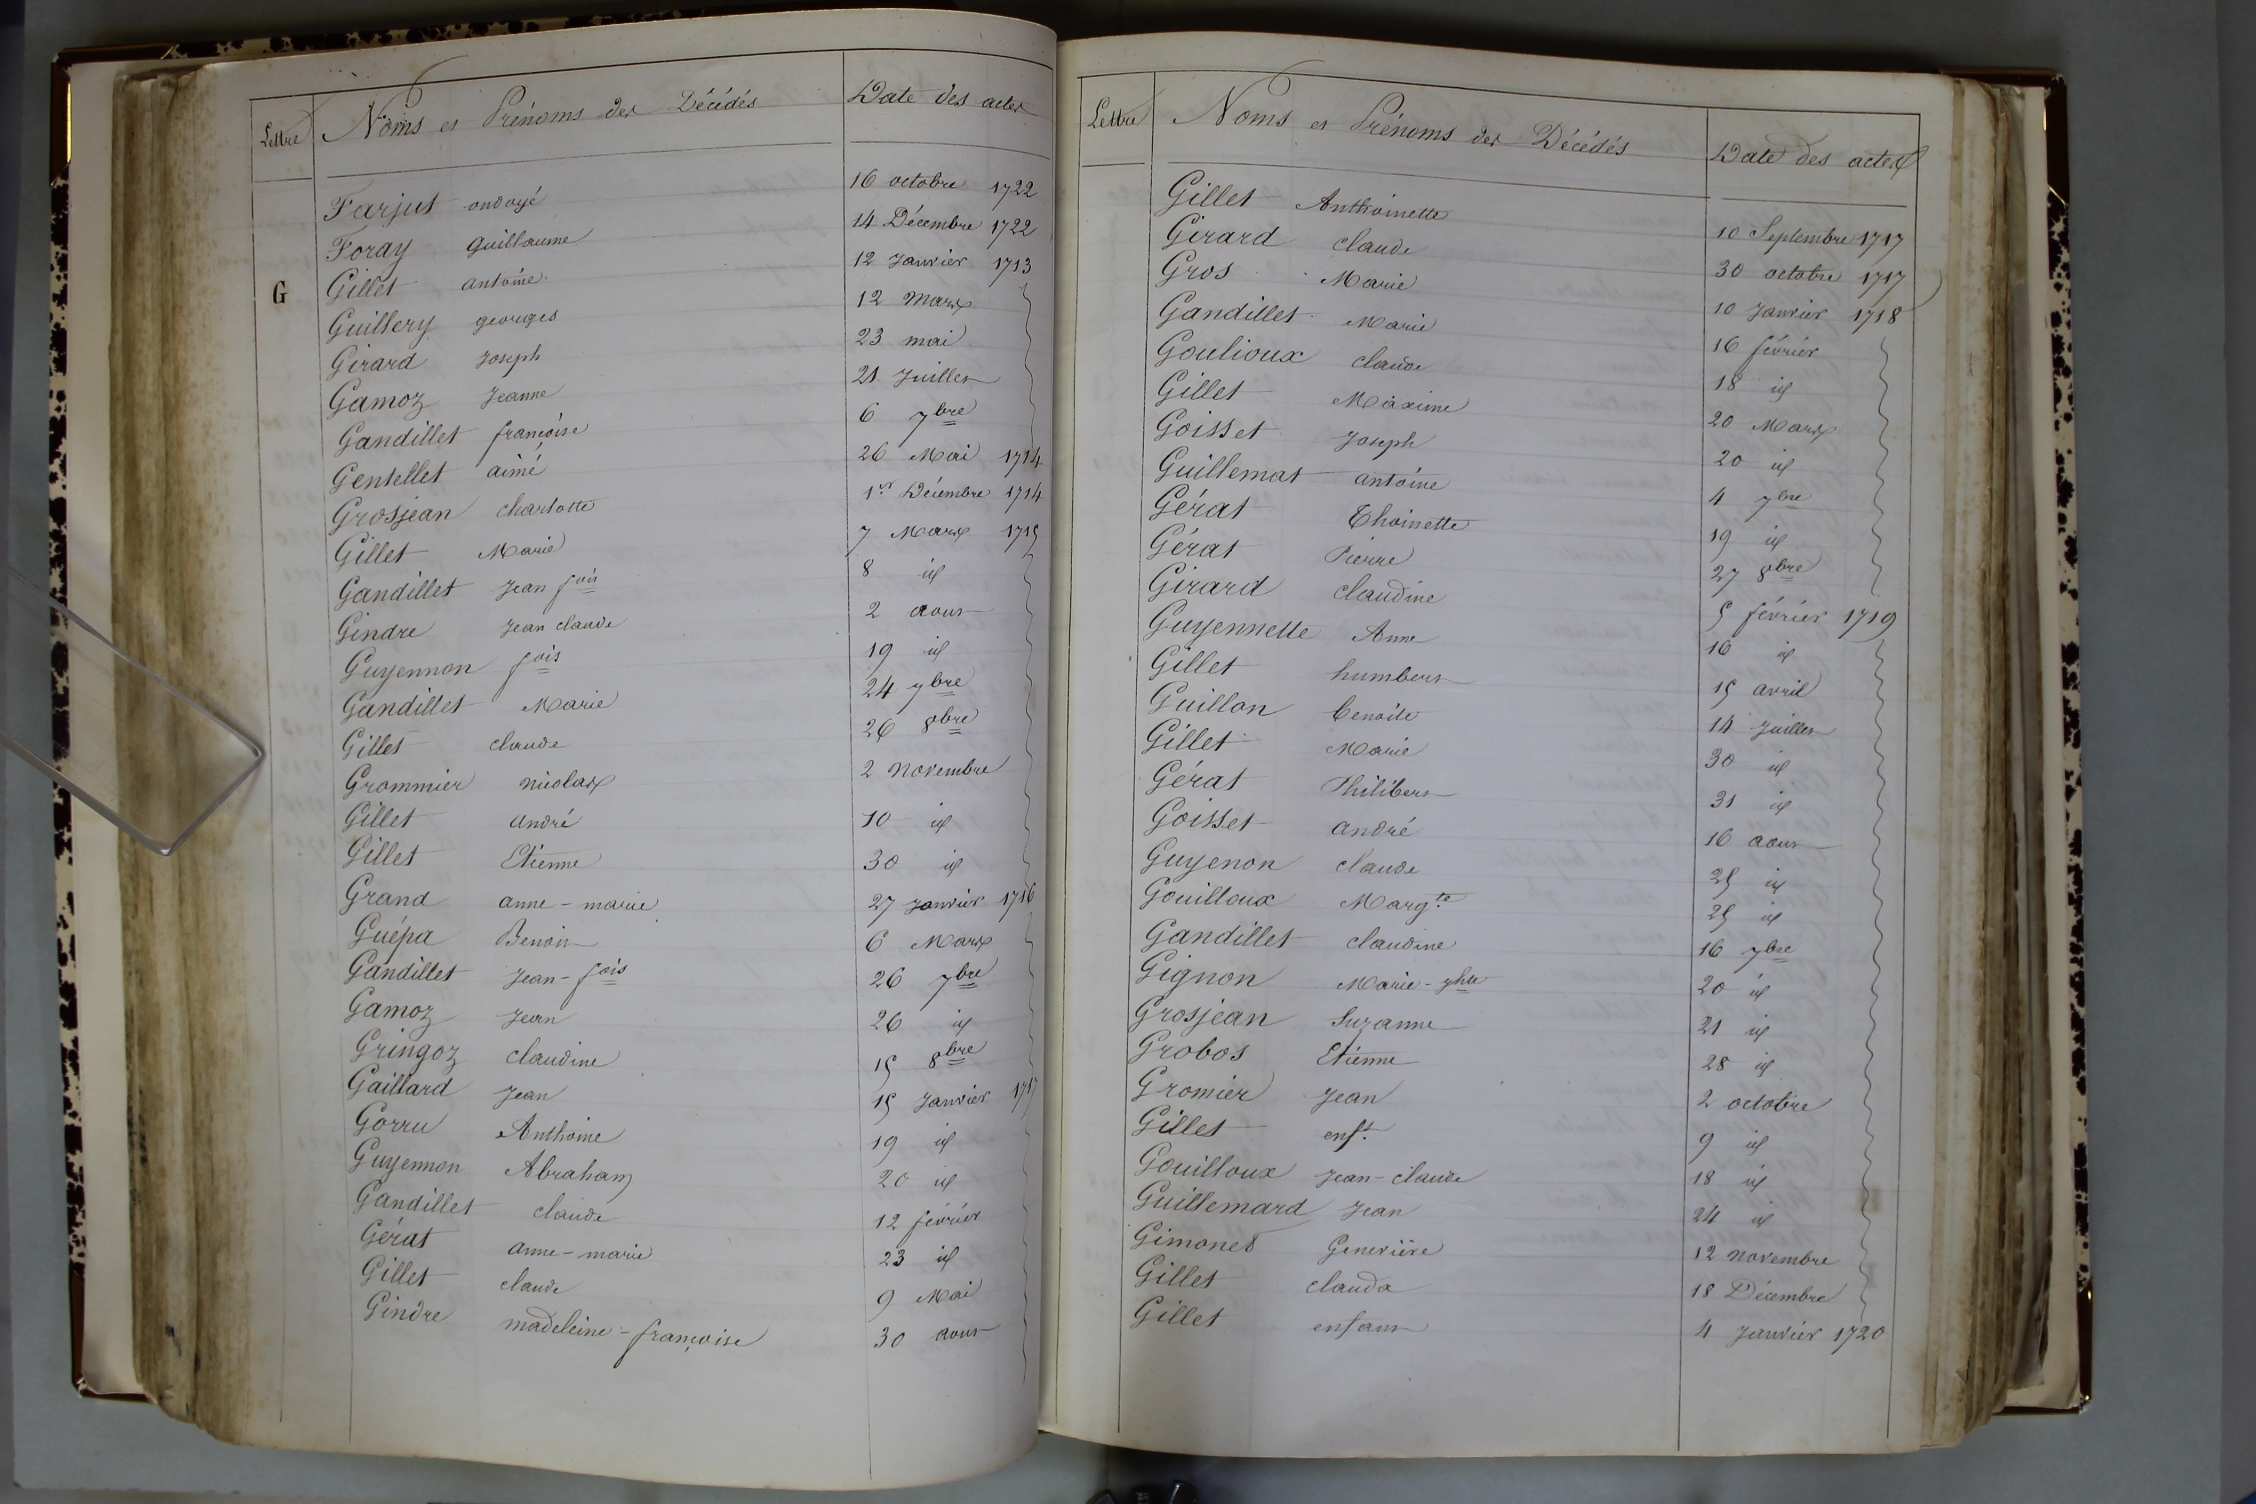 Lettre Noms et Prénoms des Décédés Date des actes
Farjut ondoyé 16 octobre 1722
Foray Guillaume 14 Décembre 1722
G Gillet antoine 12 Janvier 1713
Guillery georges 12 Mars
Girard Joseph 23 mai
Gamoz Jeanne 21 Juillet
Gandillet françoise 6 7bre
Gentellet aimé 26 Mai 1714
Grosjean Charlotte 1er Décembre 1714
Gillet Marie 7 Mars 1715
Gandillet Jean fois 8 id
Gindre Jean claude 2 aout
Guyennon fois 19 id
Gandillet Marie 24 7bre
Gillet claude 26 8bre
Grommier nicolas 2 novembre
Gillet andré 10 id
Gillet Etienne 30 id
Grand anne-marie 27 Janvier 1716
Guépa Benoit 6 Mars
Gandillet Jean-fois 26 7bre
Gamoz Jean 26 id
Gringoz claudine 15 8bre
Gaillard Jean 15 Janvier 1717
Gorru Anthoine 19 id
Guyennon Abraham 20 id
Gandillet claude 12 février
Gérat anne-marie 23 id
Gillet claude 9 Mai
Gindre madeleine-françoise 30 aout
Lettre Noms et Prénoms des Décédés Date des actes
Gillet Anthoinette 10 Septembre 1717
Girard claude 30 octobre 1717
Gros Marie 10 Janvier 1718
Gandillet Marie 16 février
Goulioux claude 18 id
Gillet Maxime 20 Mars
Goisset Joseph 20 id
Guillemat antoine 4 7bre
Gérat Thoinette 19 id
Gérat Pierre 27 8bre
Girard claudine 5 février 1719
Guyennette Anne 16 id
Gillet humbert 15 avril
Guillon benoite 14 Juillet
Gillet Marie 30 id
Gérat Philibert 31 id
Goisset andré 16 aout
Guyenon claude 25 id
Gouilloux Margte 25 id
Gandillet claudine 16 7bre
Gignon Marie- 20 id
Grosjean Suzanne 21 id
Grobos Etienne 28 id
Gromier Jean 2 octobre
Gillet enft. 9 id
Gouilloux Jean-claude 18 id
Guillemard Jean 24 id
Gimonet Geneviève 12 novembre
Gillet clauda 18 Décembre
Gillet enfant 4 Janvier 1720